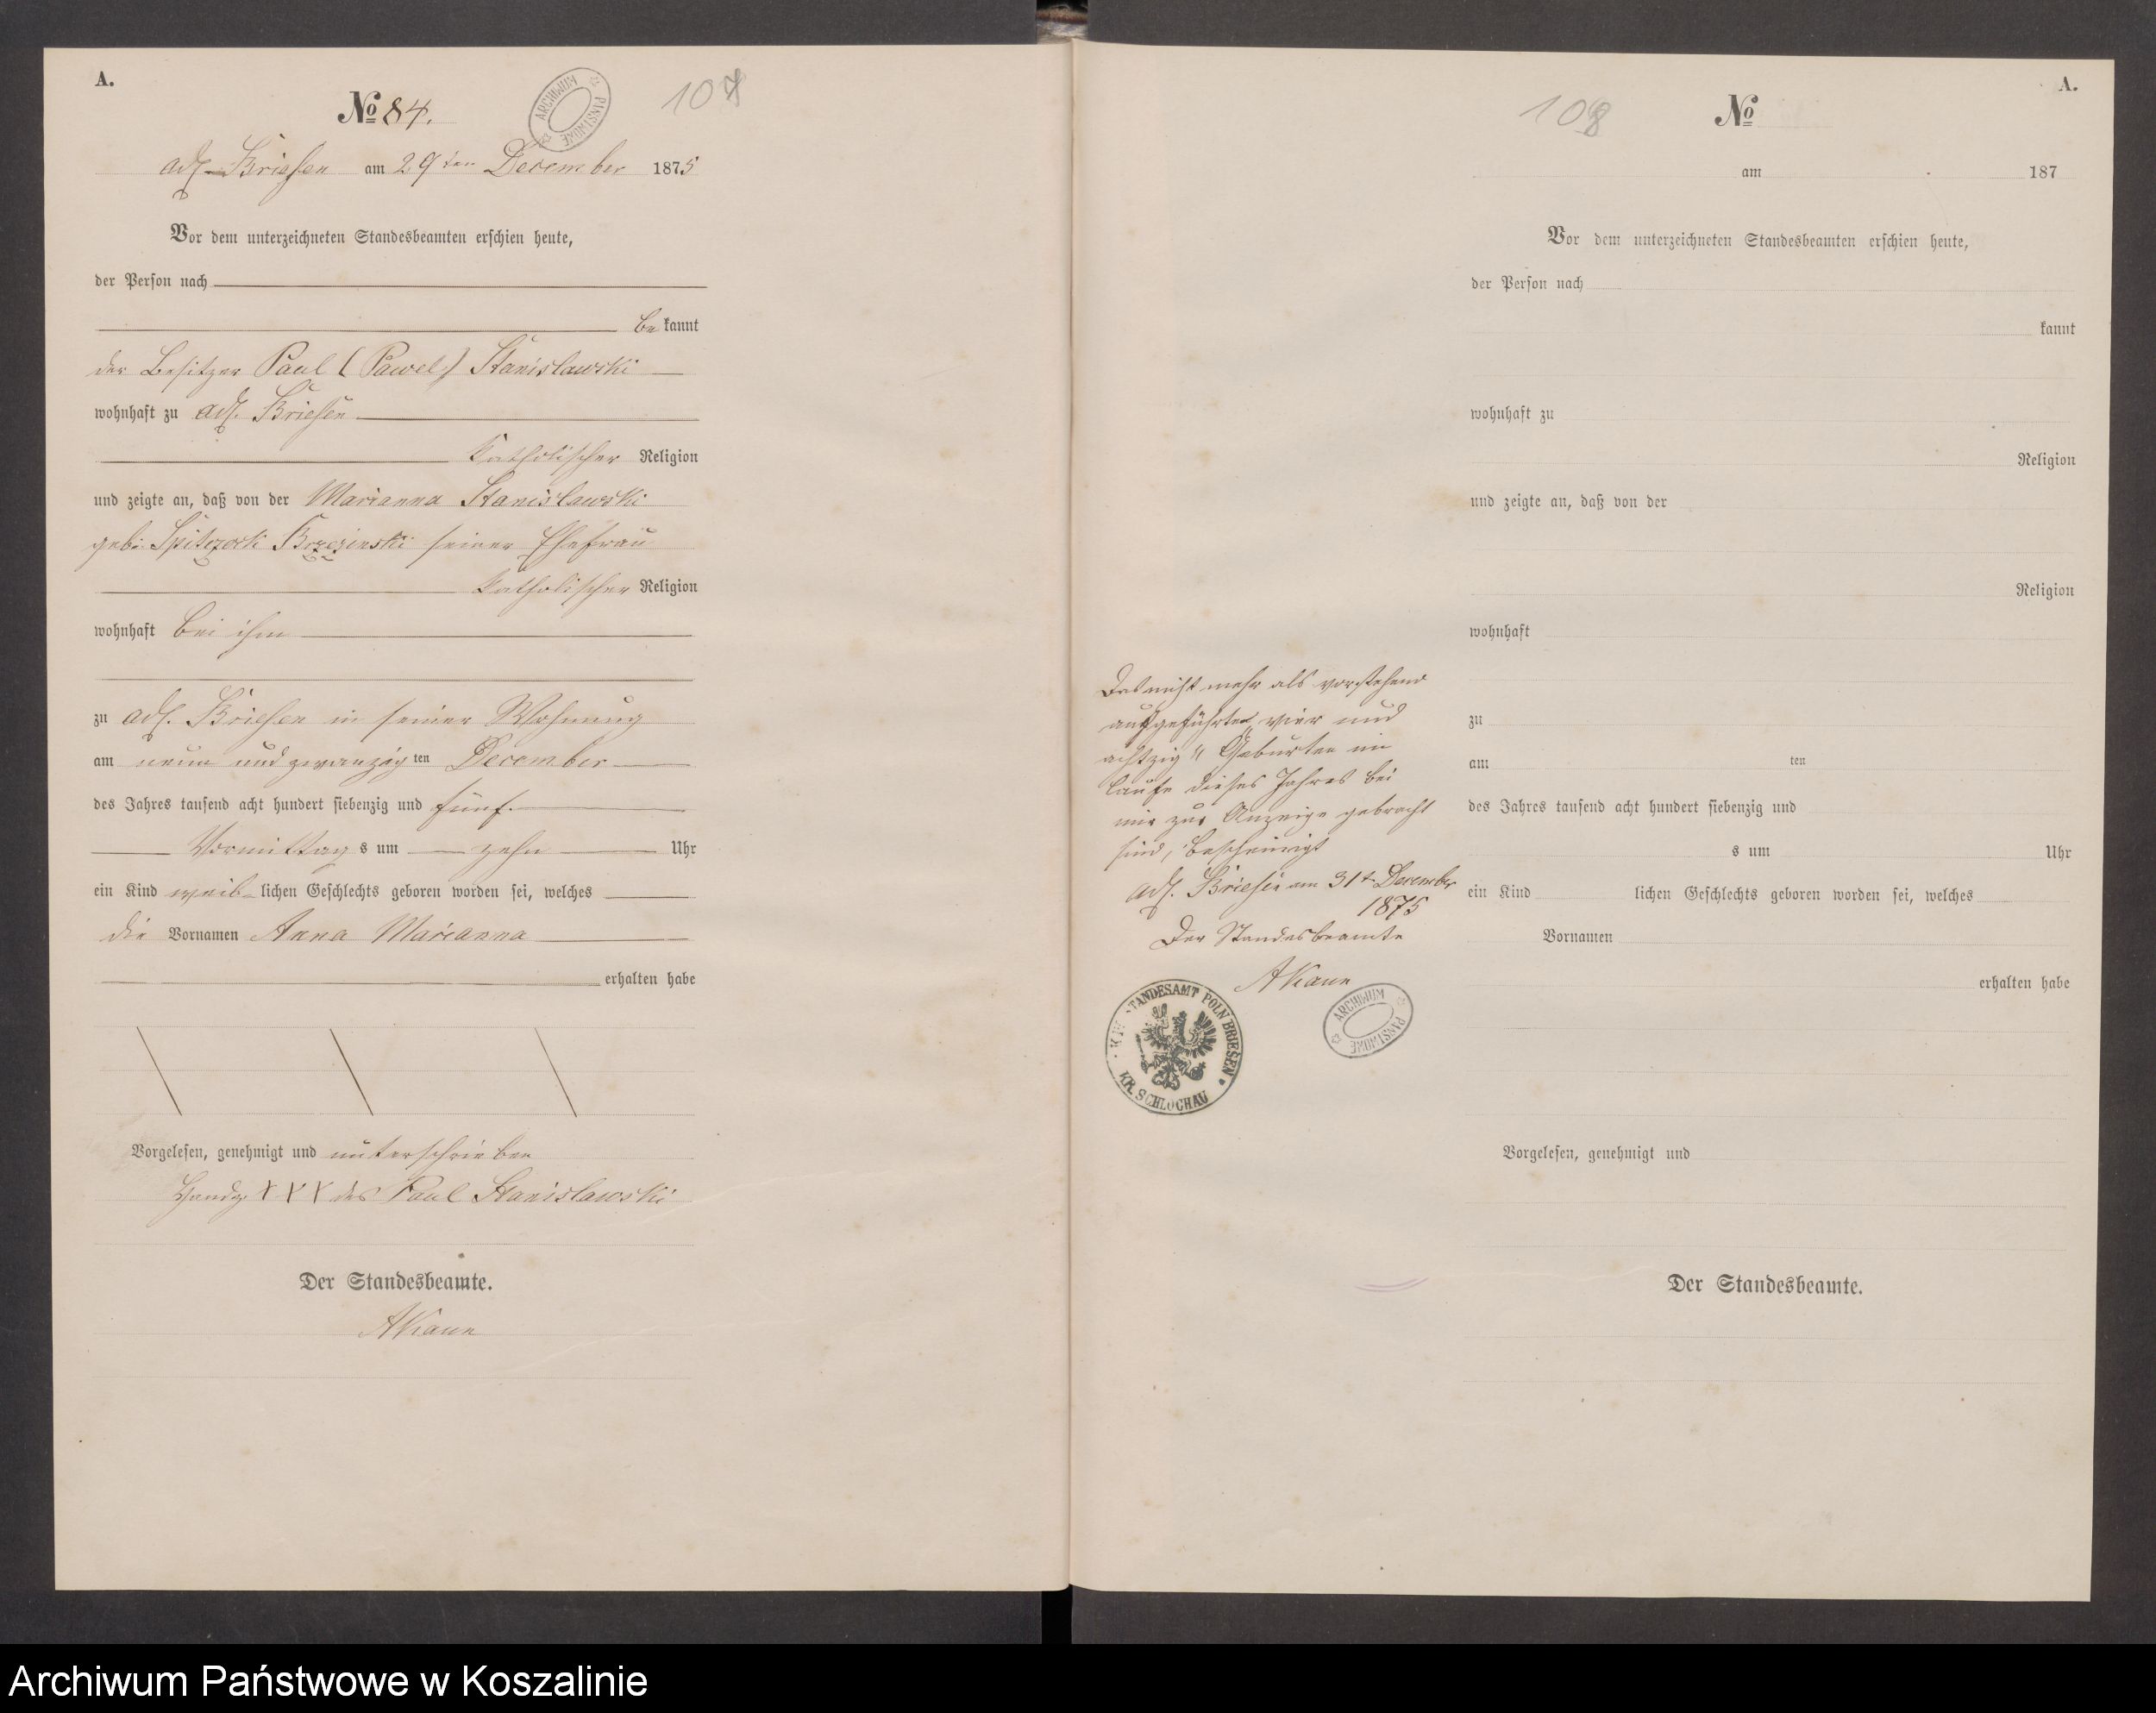 A.
No 84.
107
adl. Briesen am 29ten December 1875
Vor dem unterzeichneten Standesbeamten erschien heute,
der Person nach
be kannt
der Besitzer Paul (Pawel) Stanislawski
wohnhaft zu adl. Briesen
katholischer Religion
und zeigte an, daß von der Marianna Stanislawski
geb. Brzezinski seiner Ehefrau
katholischer Religion
wohnhaft bei ihm
zu adl. Briesen in seiner Wohnung
am neun und zwanzig ten December
des Jahres tausend acht hundert siebenzig und fünf.
Vormittag s um zehn Uhr
ein Kind weib lichen Geschlechts geboren worden sei, welches
die Vornamen Anna Marianna
erhalten habe
Vorgelesen, genehmigt und unterschrieben
Handz. X X X des Paul Stanislawski
Der Standesbeamte.
ARCHIWUM PAŃSTWOWE
108
No
A.
am 187
Vor dem unterzeichneten Standesbeamten erschien heute,
der Person nach
kannt
wohnhaft zu
Religion
und zeigte an, daß von der
Religion
wohnhaft
zu
am ten
des Jahres tausend acht hundert siebenzig und
s um Uhr
ein Kind lichen Geschlechts geboren worden sei, welches
Vornamen
erhalten habe
Vorgelesen, genehmigt und
Der Standesbeamte.
Das nicht mehr als vorstehend
aufgeführte „vier und
achtzig“ Geburten im
Laufe dieses Jahres bei
mir zur Anzeige gebracht
sind, bescheinigt
adl. Briesen am 31t December
1875
Der Standesbeamte
STANDESAMT POLN BRIESEN
KR. SCHLOCHAU
ARCHIWUM PAŃSTWOWE
Archiwum Państwowe w Koszalinie